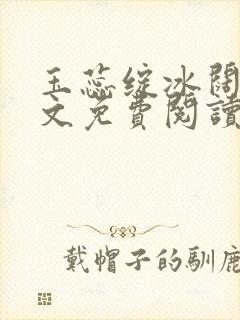 玉蕊绽冰闊
文免費閱讀
戴帽子的馴鹿